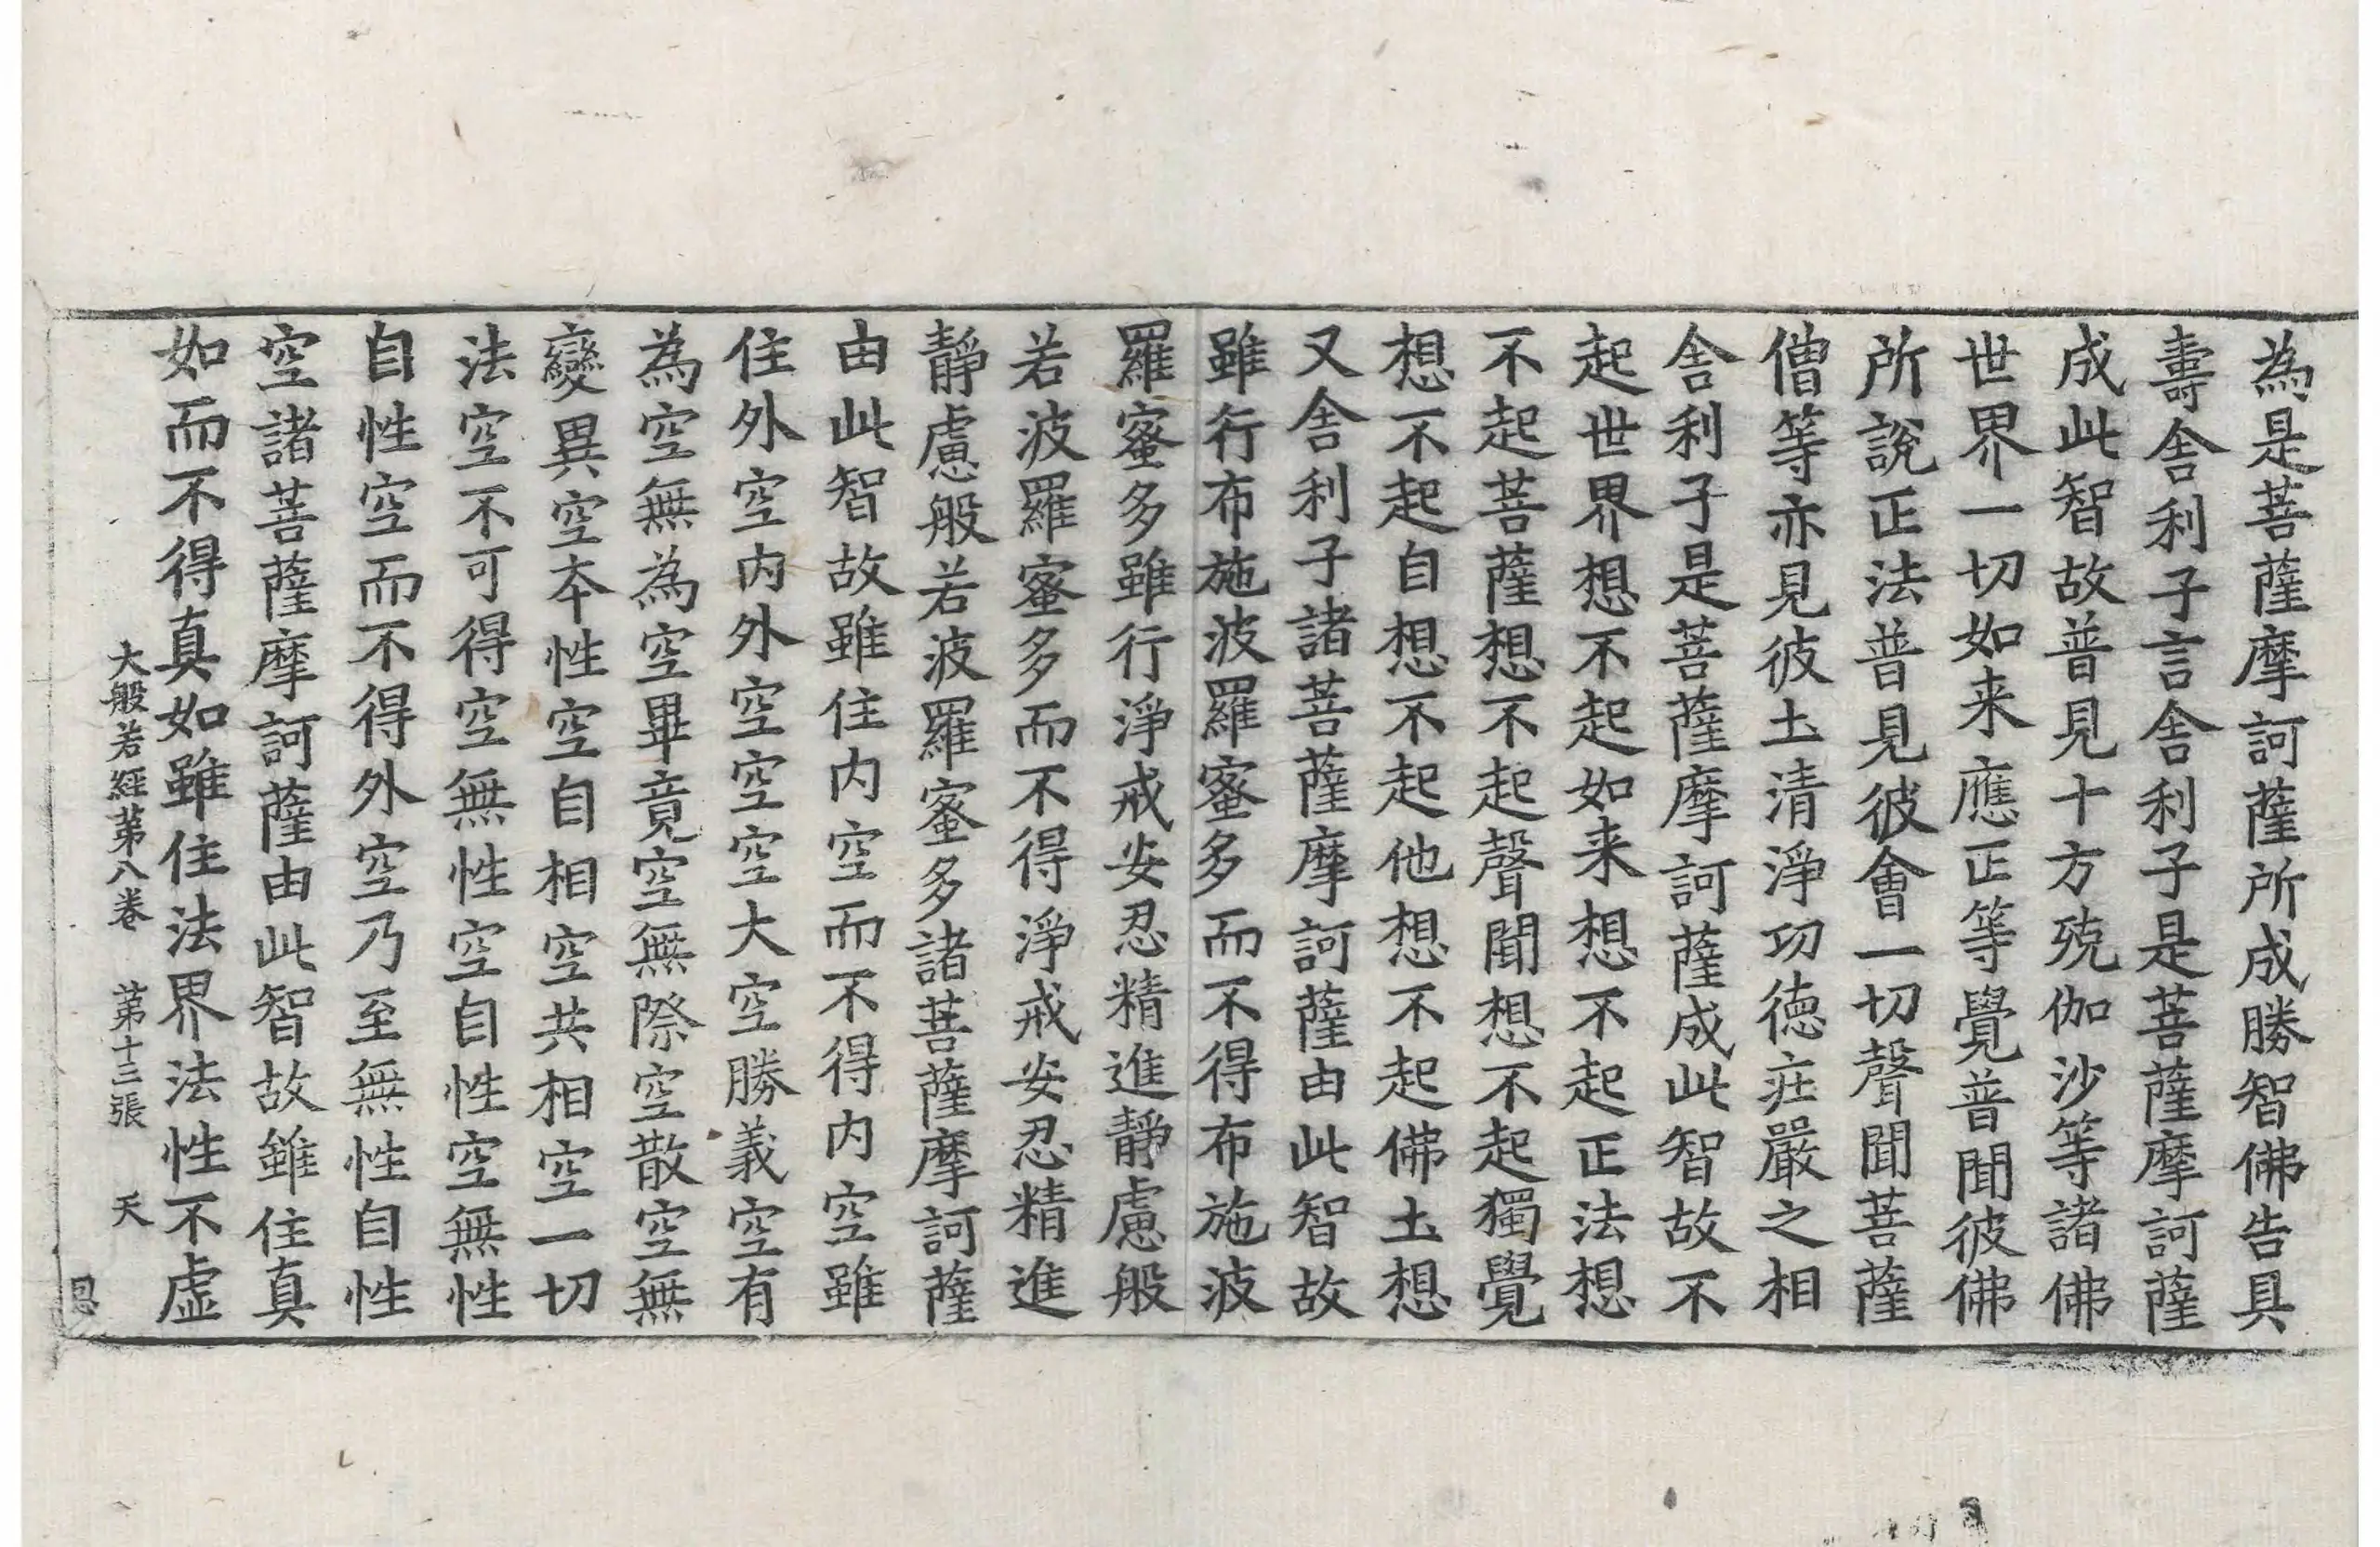 為是菩薩摩訶薩所成勝智佛告具
壽舎利子言舎利子是菩薩摩訶薩
成此智故普見十方殑伽沙等諸佛
世界一切如来應正等覺普聞彼佛
所說正法普見彼會一切聲聞菩薩
僧等亦見彼土清淨功德莊嚴之相
舎利子是菩薩摩訶薩成此智故不
起世界想不起如来想不起正法想
不起菩薩想不起聲聞想不起獨覺
想不起自想不起他想不起佛土想
又舎利子諸菩薩摩訶薩由此智故
雖行布施波羅蜜多而不得布施波
羅蜜多雖行淨戒安忍精進靜慮般
若波羅蜜多而不得淨戒安忍精進
靜慮般若波羅蜜多諸菩薩摩訶薩
由此智故雖住内空而不得内空雖
住外空内外空空空大空勝義空有
為空無為空畢竟空無際空散空無
變異空本性空自相空共相空一切
法空不可得空無性空自性空無性
自性空而不得外空乃至無性自性
空諸菩薩摩訶薩由此智故雖住真
如而不得真如雖住法界法性不虛
大般若經第八卷 第十三張 天